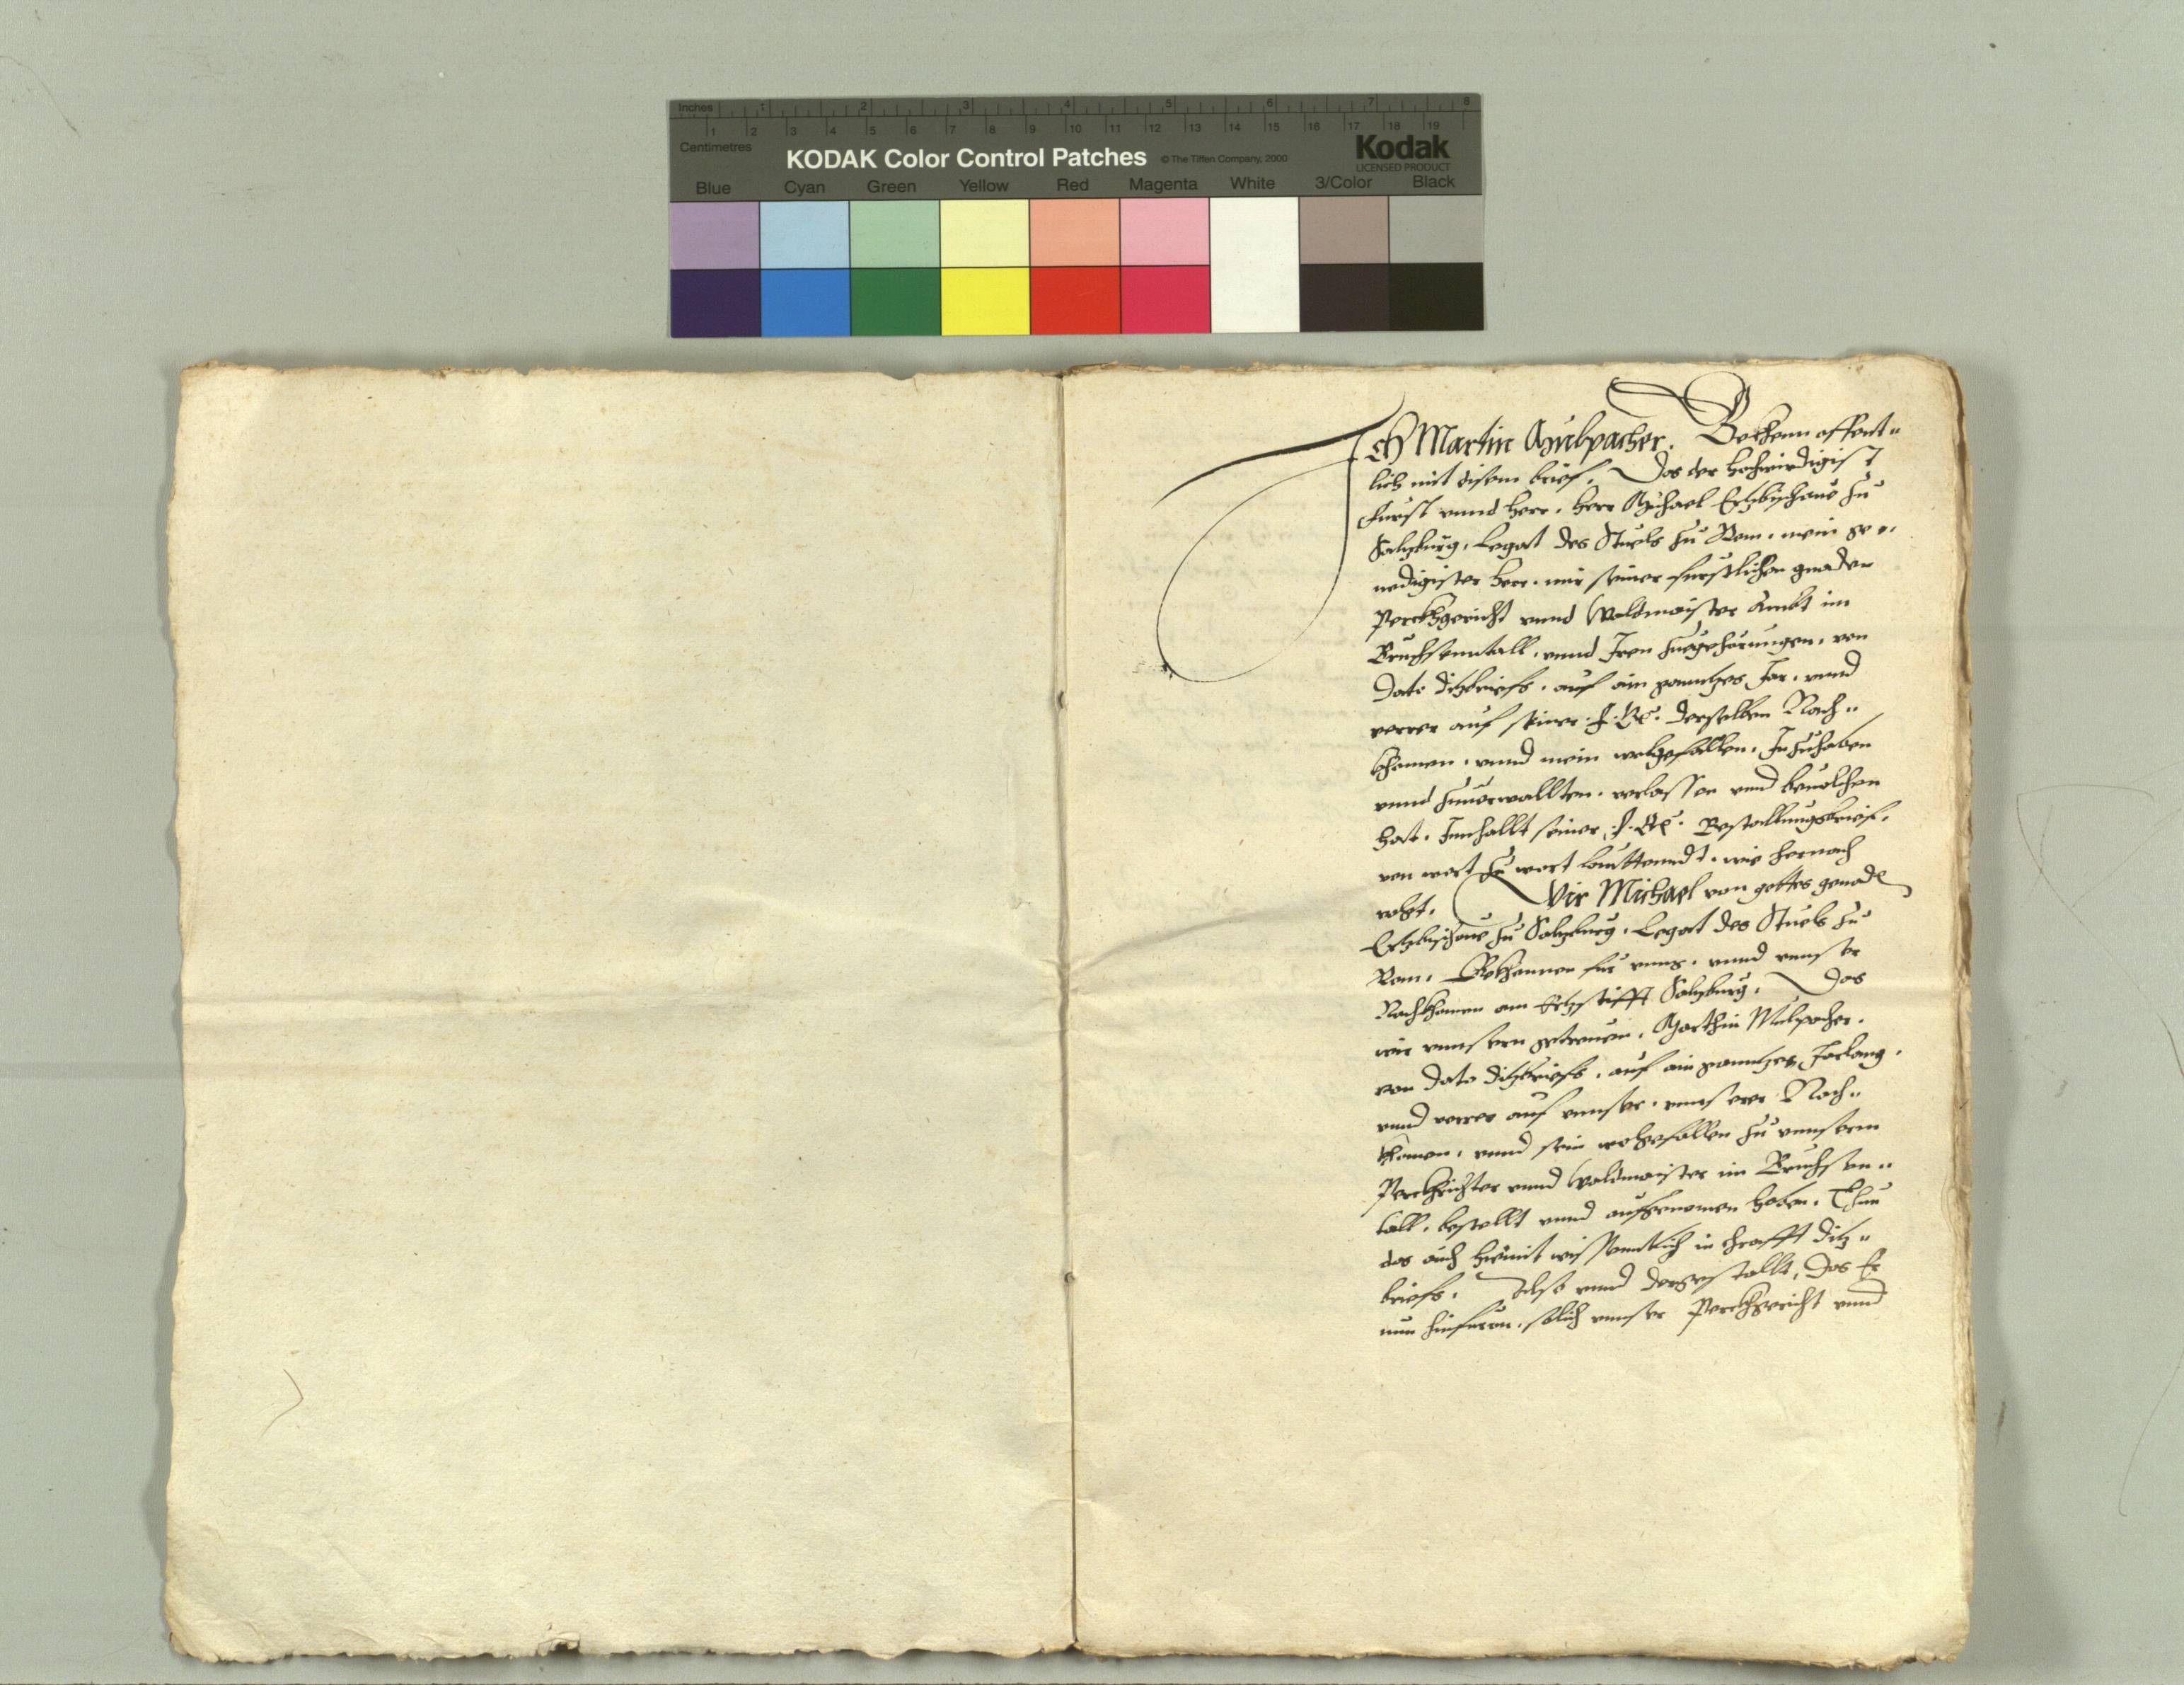 Inches 1 2 3 4 5 6 7 8
1 2 3 4 5 6 7 8 9 10 11 12 13 14 15 16 17 18 19
Centimetres
KODAK Color Control Patches © The Tiffen Company, 2000 Kodak
LICENSED PRODUCT
Blue Cyan Green Yellow Red Magenta White 3/Color Black
Ich Martin Mulpacher. Bekhenn offent„
lich mit disem brief. Das der hochwirdigist
Furst vnnd herr. herr Michael Ertzbischoue zu
Saltzburg. Legat des Stuels zu Rom. mein ge„
nedigister herr. mir seiner furstlichen gnaden
Perckhgericht vnnd Waldmaister Ambt im
Prichsenntall. vnnd Iren zuegehorungen. von
Dato ditzbriefs. auf ain ganntzes Jar. vnnd
verrer auf seiner f. Gn. derselben Nach„
khomen. vnnd mein wolgefallen. Inzuhaben
vnnd zuuerwallten. verlassen vnd beuolchen
hat. Innhallt seiner f. Gn. Bestallungsbrief.
von wort zu wort lauttenndt. wie hernach
volgt. Wir Michael von gottes genaden
Ertzbischoue zu Saltzburg. Legat des Stuels zu
Rom. Bekhennen fur vnns. vnnd vnnser
Nachkhomen am Ertzstifft Saltzburg. Das
wir vnnsern getreuen. Marthin Mulpacher.
von dato ditzbriefs. auf ain ganntzes Jarlang.
vnnd verrer auf vnnser. vnnserer Nach„
khomen. vnnd sein wolgefallen zu vnnserm
Perckhrichter vnnd Waldmaister im Brichsen„
tall. bestellt vnnd aufgenomen haben. Thun
das auch hiemit wissenntlich in chrafft ditz„
briefs. Also vnnd dergestallt, das Er
nun hinfuron. solich vnnser Perckhgericht vnnd